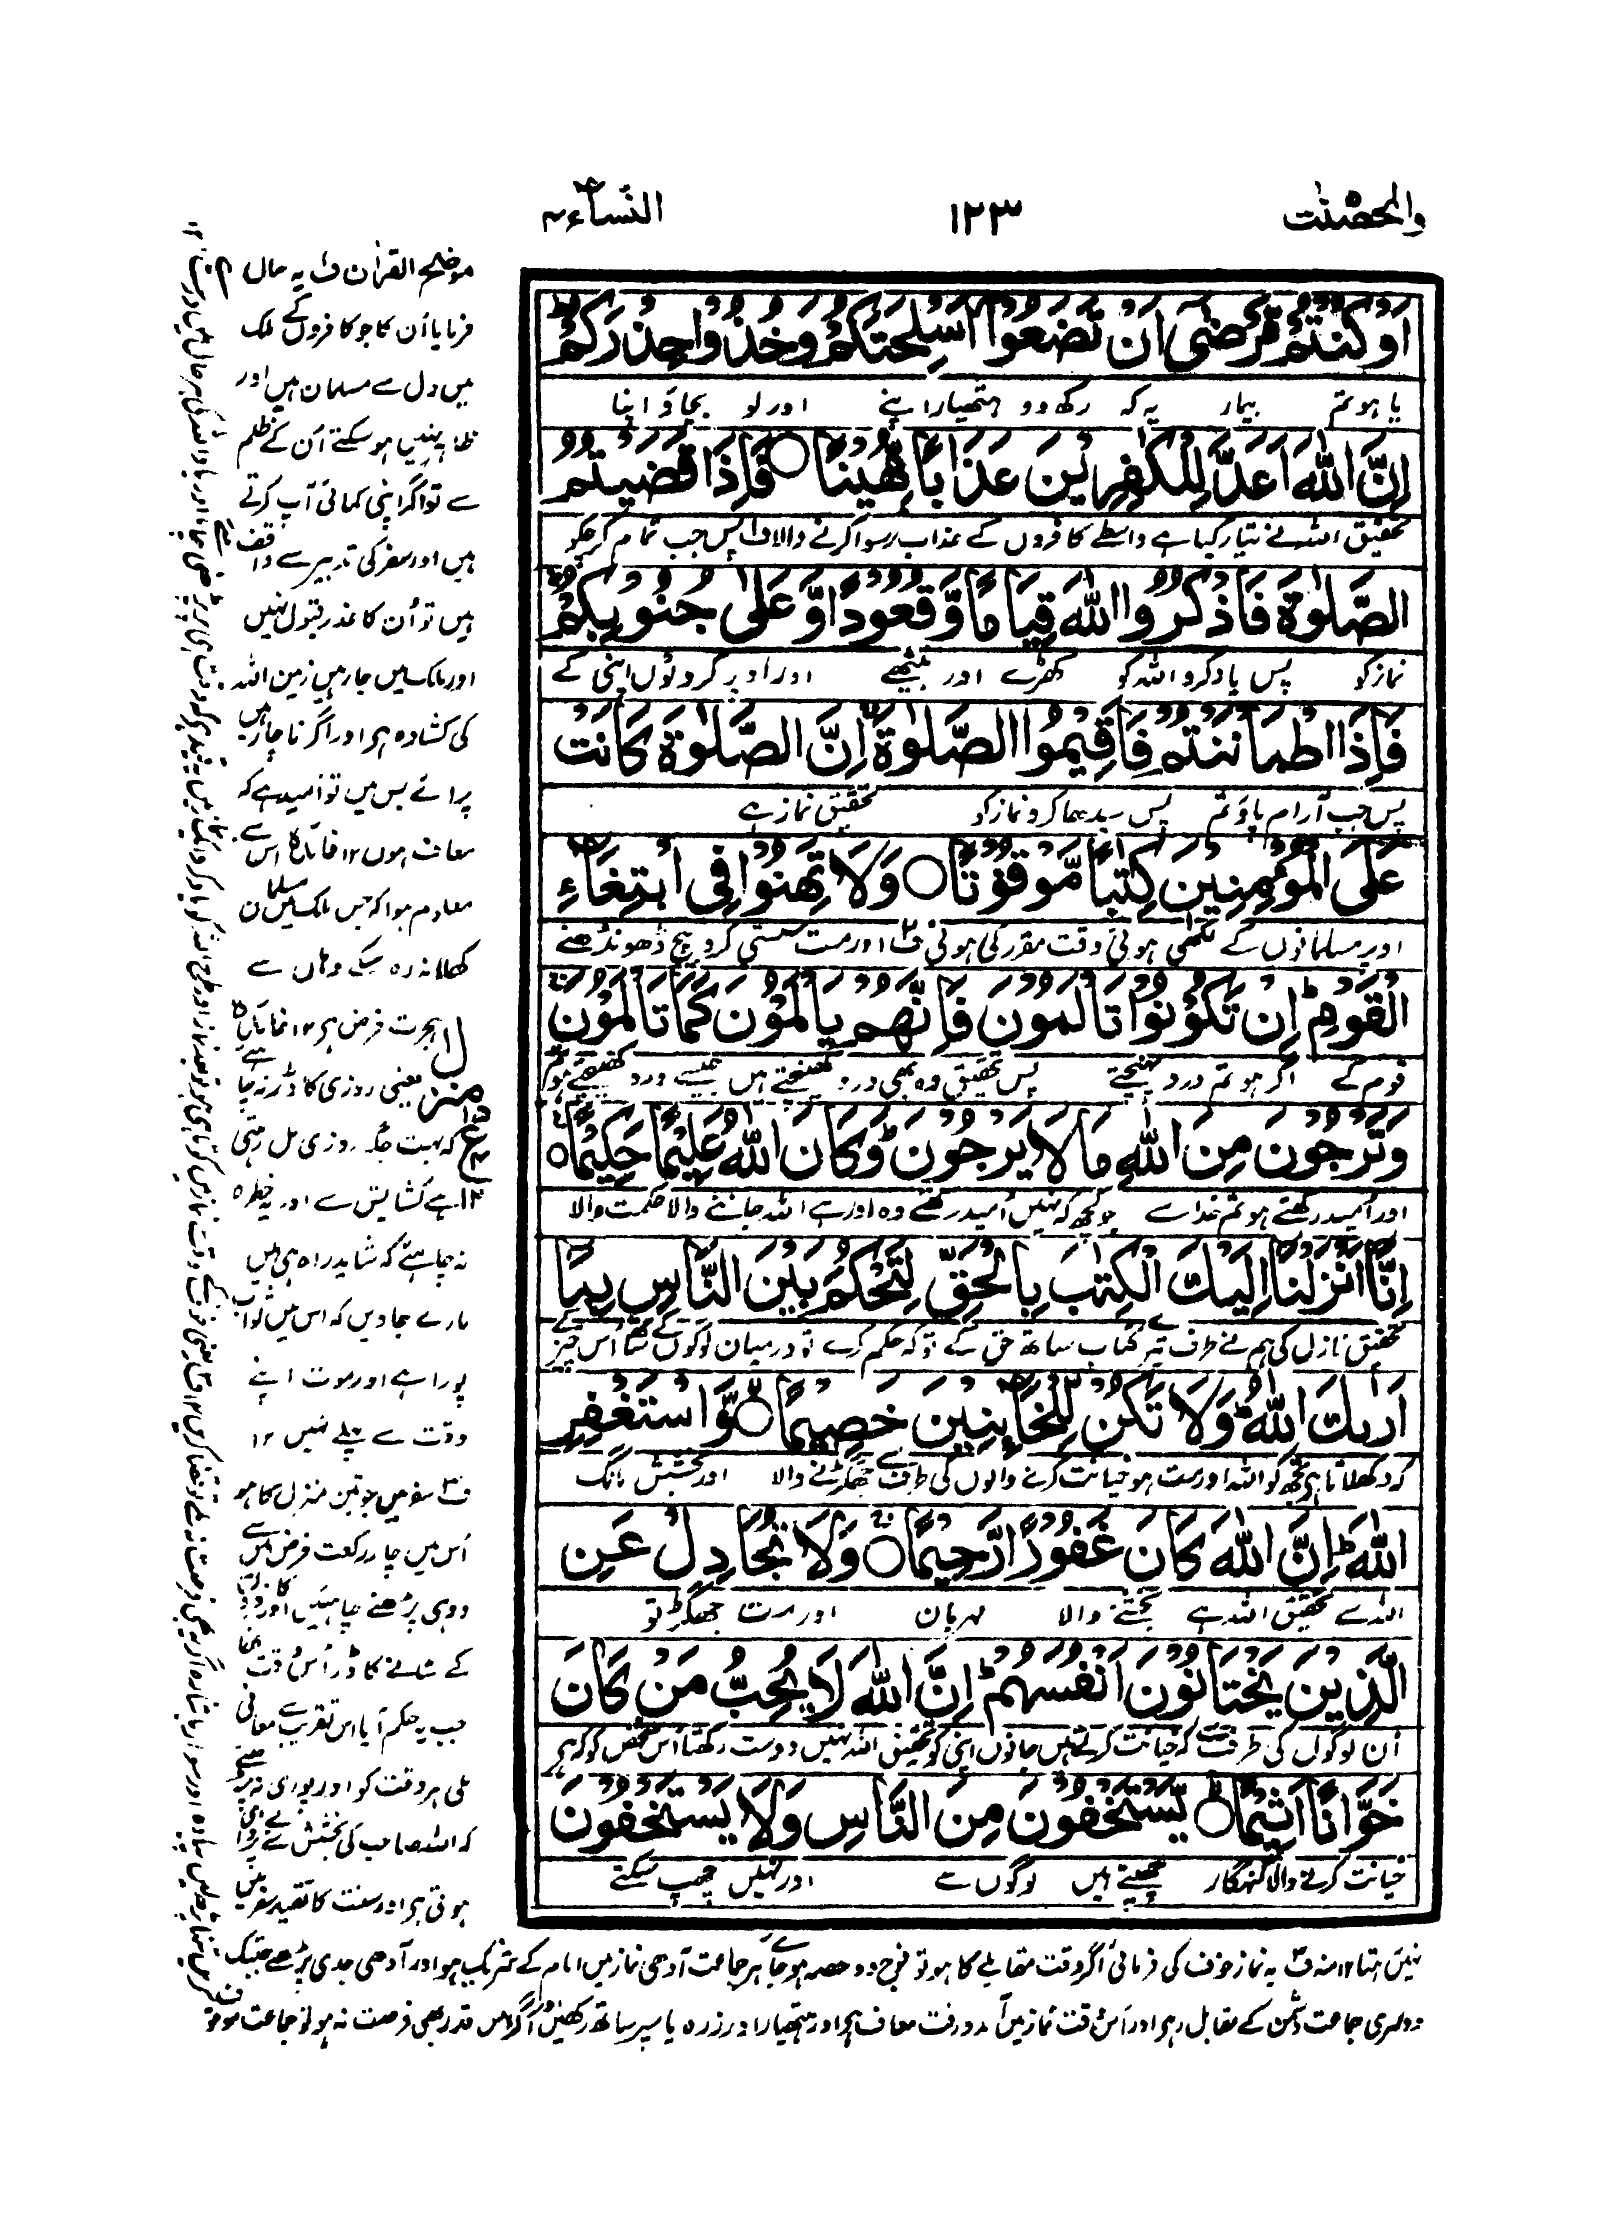 والمحصنت
١٢٣
النساء ٤
اَوْ كُنْتُمْ مَّرْضٰۤى اَنْ تَضَعُوْۤا اَسْلِحَتَكُمْ وَخُذُوْا حِذْرَكُمْ
یا ہو تم بیمار یہ کہ رکھ دو ہتھیار اپنے اور لو بچاؤ اپنا
اِنَّ اللّٰهَ اَعَدَّ لِلْكٰفِرِيْنَ عَذَابًا مُّهِيْنًا ○ فَاِذَا قَضَيْتُمُ
تحقیق اللہ نے تیار کیا ہے واسطے کافروں کے عذاب رسوا کرنے والا ف۱ پس جب تمام کر چکو
الصَّلٰوةَ فَاذْكُرُوا اللّٰهَ قِيَامًا وَّقُعُوْدًا وَّعَلٰى جُنُوْبِكُمْ
نماز کو پس یاد کرو اللہ کو کھڑے اور بیٹھے اور اوپر کروٹوں اپنی کے
فَاِذَا اطْمَاْنَنْتُمْ فَاَقِيْمُوا الصَّلٰوةَ اِنَّ الصَّلٰوةَ كَانَتْ
پس جب آرام پاؤ تم پس سیدھا کرو نماز کو تحقیق نماز ہے
عَلَى الْمُؤْمِنِيْنَ كِتٰبًا مَّوْقُوْتًا ○ وَلَا تَهِنُوْا فِى ابْتِغَآءِ
اوپر مسلمانوں کے لکھی ہوئی وقت مقرر کی ہوئی ف۲ اور مت سستی کرو بیچ ڈھونڈھنے
الْقَوْمِ ؕ اِنْ تَكُوْنُوْا تَاْلَمُوْنَ فَاِنَّهُمْ يَاْلَمُوْنَ كَمَا تَاْلَمُوْنَ
قوم کے اگر ہو تم درد کھینچتے پس تحقیق وہ بھی درد کھینچتے ہیں جیسے درد کھینچتے ہو تم
وَتَرْجُوْنَ مِنَ اللّٰهِ مَا لَا يَرْجُوْنَ ؕ وَكَانَ اللّٰهُ عَلِيْمًا حَكِيْمًا ○
اور اُمید رکھتے ہو تم خدا سے جو کچھ کہ نہیں اُمید رکھتے وہ اور ہے اللہ جاننے والا حکمت والا
اِنَّاۤ اَنْزَلْنَاۤ اِلَيْكَ الْكِتٰبَ بِالْحَقِّ لِتَحْكُمَ بَيْنَ النَّاسِ بِمَاۤ
تحقیق نازل کی ہم نے طرف تیرے کتاب ساتھ حق کے تو کہ حکم کرے تو درمیان لوگوں کے ساتھ اُس چیز کے
اَرٰىكَ اللّٰهُ ؕ وَلَا تَكُنْ لِّلْخَآئِنِيْنَ خَصِيْمًا ○ وَّاسْتَغْفِرِ
کہ دکھلاتا ہے تجھ کو اللہ اور مت ہو خیانت کرنے والوں کی طرف سے جھگڑنے والا اور بخشش مانگ
اللّٰهَ ؕ اِنَّ اللّٰهَ كَانَ غَفُوْرًا رَّحِيْمًا ○ وَلَا تُجَادِلْ عَنِ
اللہ سے تحقیق اللہ ہے بخشنے والا مہربان اور مت جھگڑ تو
الَّذِيْنَ يَخْتَانُوْنَ اَنْفُسَهُمْ ؕ اِنَّ اللّٰهَ لَا يُحِبُّ مَنْ كَانَ
اُن لوگوں کی طرف سے کہ خیانت کرتے ہیں جانوں اپنی کو تحقیق اللہ نہیں دوست رکھتا اُس شخص کو کہ ہے
خَوَّانًا اَثِيْمًا ○ يَّسْتَخْفُوْنَ مِنَ النَّاسِ وَلَا يَسْتَخْفُوْنَ
خیانت کرنے والا گنہگار چھپتے ہیں لوگوں سے اور نہیں چھپ سکتے
موضح القرآن ف۱ یہ حال
فرمایا اُن کا جو کافروں کے ملک
میں دل سے مسلمان ہیں اور
ظاہر نہیں ہو سکتے اُن کے ظلم
سے تو اگر اپنی کمائی آپ کرتے
ہیں اور سفر کی تدبیر سے واقف
ہیں تو اُن کا عذر قبول نہیں
اور ملک میں جا رہیں زمین اللہ
کی کشادہ ہے اور اگر ناچار ہیں
پرائے بس میں تو اُمید ہے کہ
معاف ہوں ۱۲ فائدہ اس سے
معلوم ہوا کہ جس ملک میں مسلمان
کھلا نہ رہ سکے وہاں سے
ہجرت فرض ہے ۱۲ فائدہ
یعنی روزی کا ڈر نہ چاہیے
کہ بہت جگہ روزی مل رہتی
ہے کشایش سے اور یہ خطرہ
نہ چاہئے کہ شاید راہ ہی میں
مارے جاویں کہ اس میں ثواب
پورا ہے اور موت اپنے
وقت سے پہلے نہیں ۱۲
ف۳ سفر میں جو تین منزل کا ہو
اُس میں چار رکعت فرض میں سے
دو ہی پڑھنے چاہئیں اور کافروں
کے ستانے کا ڈر اُس وقت تھا
جب یہ حکم آیا اس تقریب سے معافی
ملی ہر وقت کو اور پوری نہ پڑھے
کہ اللہ صاحب کی بخشش سے بے پروائی
ہوتی ہے اور سنت کا تقید سفر میں
نہیں رہتا ۱۲ منہ ف۴ یہ نماز خوف کی فرمائی اگر وقت مقابلے کا ہو تو فوج دو حصہ ہو جاوے ہر جماعت آدھی نماز میں امام کے شریک ہو اور آدھی جدی پڑھے جبتک
دوسری جماعت دشمن کے مقابل رہے اور اُس وقت نماز میں آمد و رفت معاف ہے اور ہتھیار اور زرہ یا سپر ساتھ رکھیں اور اگر اس قدر بھی فرصت نہ ہو تو جماعت موقوف